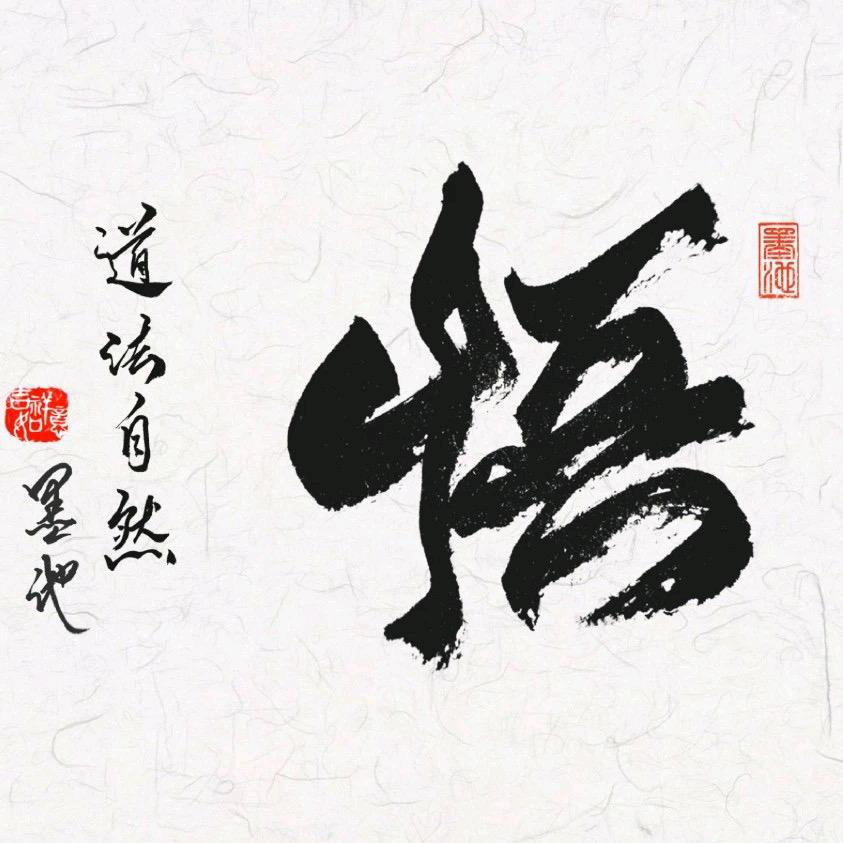 悟
墨池
道法自然
墨池
吉祥如意